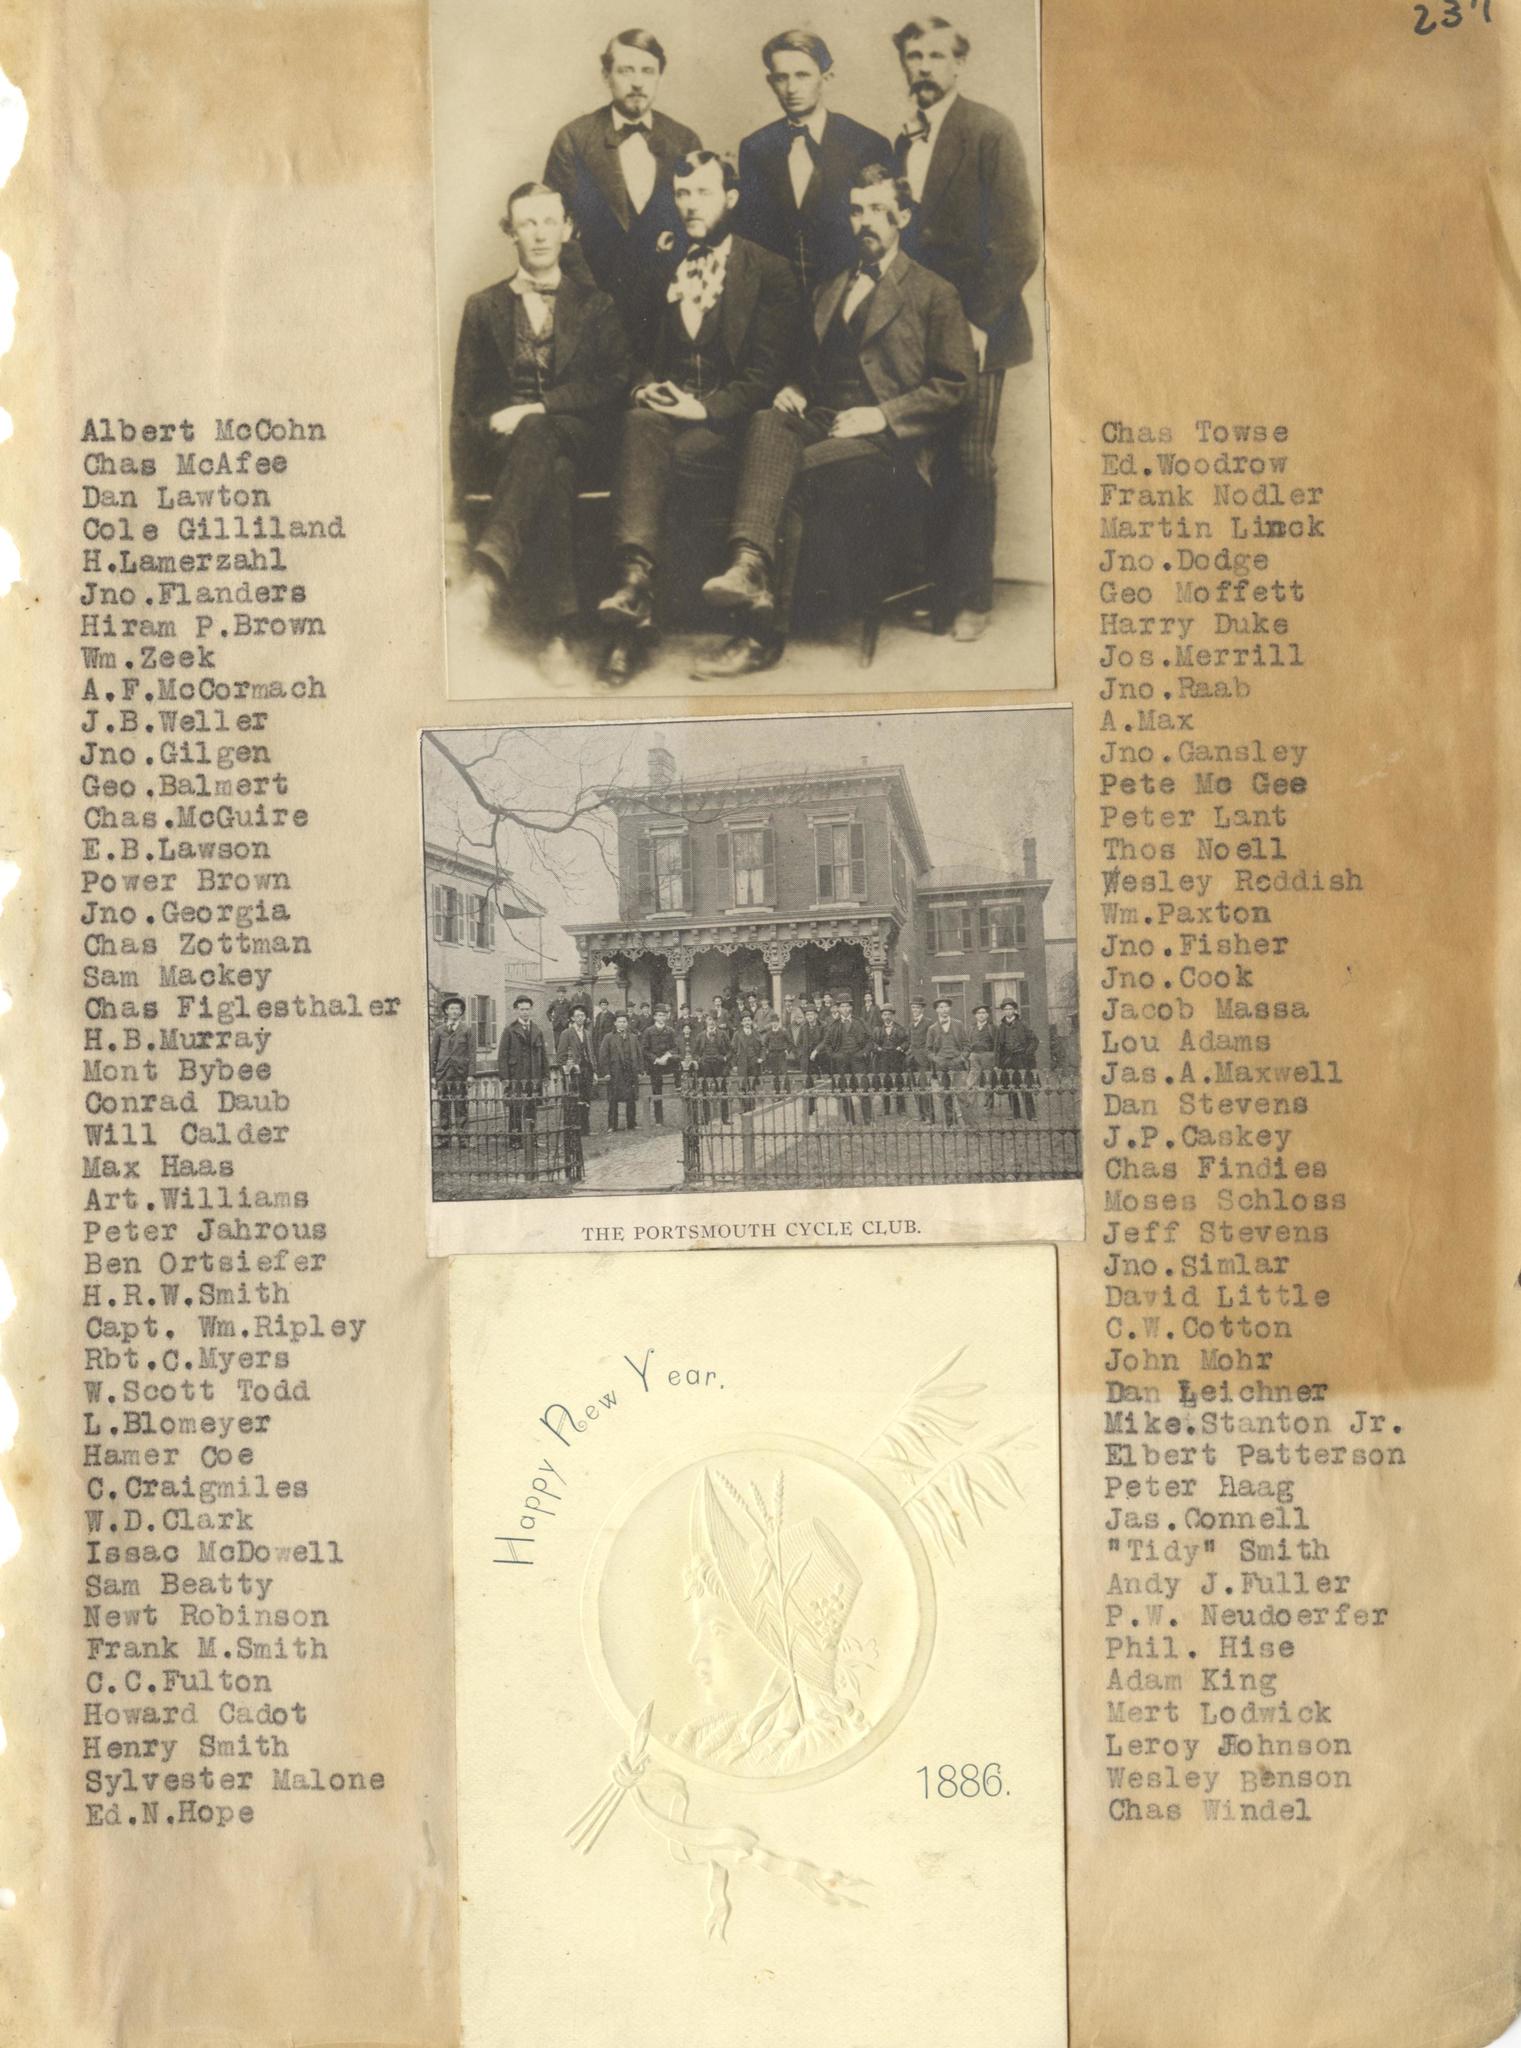 Albert McCohn
Chas McAfee
Dan Lawton
Cole Gilliland
H.Lamerzahl
Jno.Flanders
Hiram P.Brown
Wm.Zeek
A.F.McCormach
J.B.Weller
Jno.Gilgen
Geo.Balmert
Chas.McGuire
E.B.Lawson
Power Brown
Jno.Georgia
Chas Zottman
Sam Mackey
Chas Figlesthaler
H.B.Murray
Mont Bybee
Conrad Daub
Will Calder
Max Haas
Art.Williams
Peter Jahrous
Ben Ortsiefer
H.R.W.Smith
Capt. Wm.Ripley
Rbt.C.Myers
W.Scott Todd
L.Blomeyer
Hamer Coe
C.Craigmiles
W.D.Clark
Issac McDowell
Sam Beatty
Newt Robinson
Frank M.Smith
C.C.Fulton
Howard Cadot
Henry Smith
Sylvester Malone
Ed.N.Hope
THE PORTSMOUTH CYCLE CLUB.
Happy New Year.
1886.
Chas Towse
Ed.Woodrow
Frank Nodler
Martin Linck
Jno.Dodge
Geo Moffett
Harry Duke
Jos.Merrill
Jno.Raab
A.Max
Jno.Gansley
Pete Mc Gee
Peter Lant
Thos Noell
Wesley Reddish
Wm.Paxton
Jno.Fisher
Jno.Cook
Jacob Massa
Lou Adams
Jas.A.Maxwell
Dan Stevens
J.P.Caskey
Chas Findies
Moses Schloss
Jeff Stevens
Jno.Simlar
David Little
C.W.Cotton
John Mohr
Dan Leichner
Mike.Stanton Jr.
Elbert Patterson
Peter Haag
Jas.Connell
"Tidy" Smith
Andy J.Fuller
P.W. Neudoerfer
Phil. Hise
Adam King
Mert Lodwick
Leroy Johnson
Wesley Benson
Chas Windel